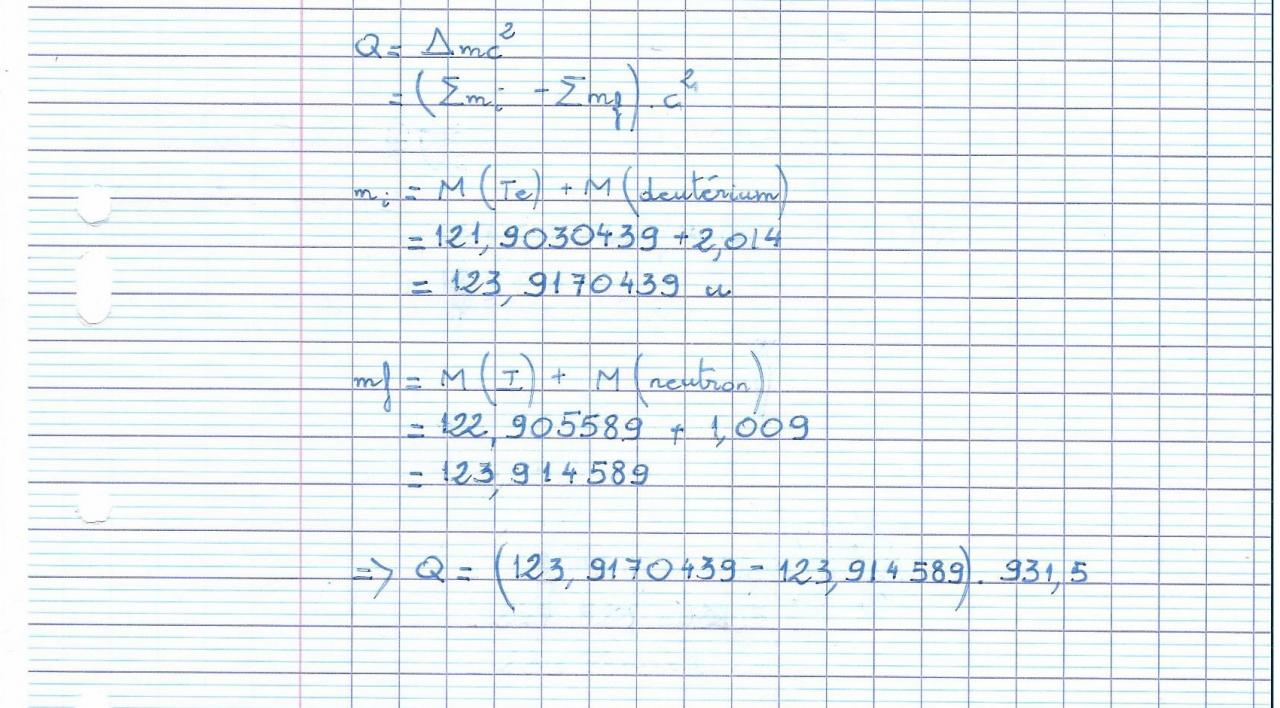 Q = Δmc²
= (Σmᵢ - Σmf) . c²
mᵢ = M (Te) + M (deutérium)
= 121,9030439 + 2,014
= 123,9170439 u
mf = M (I) + M (neutron)
= 122,905589 + 1,009
= 123,914589
=> Q = (123,9170439 - 123,914589) . 931,5